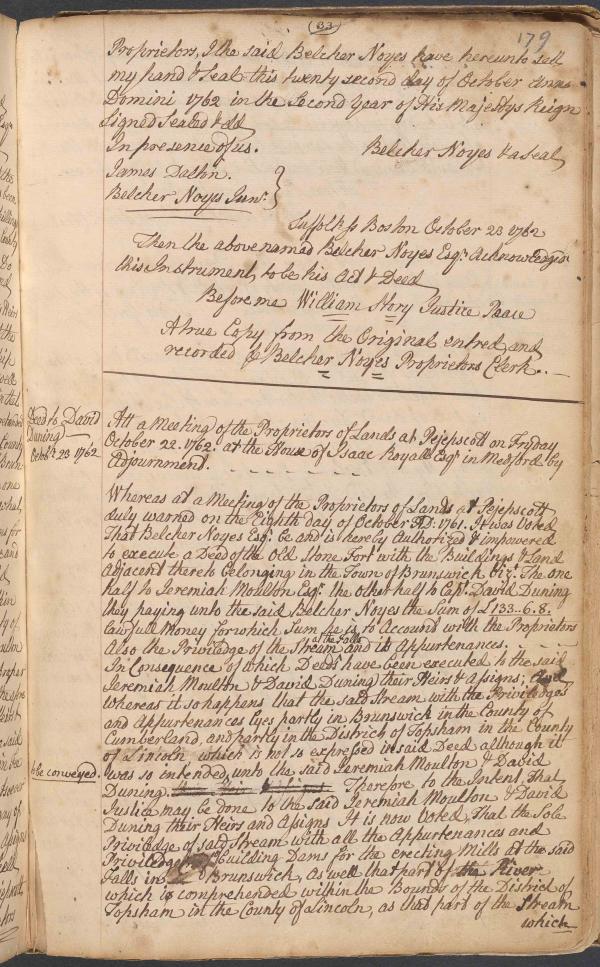 (83)
179
Proprietors, I the said Belcher Noyes have hereunto sett
my hand & Seal this twenty second day of October Anno
Domini 1762 in the Second Year of His Majestys Reign
Signed Sealed & dd
In presence of us.
Belcher Noyes & a Seal
James Dalton.
Belcher Noyes Junr.
Suffolk ss Boston October 23 1762
Then the abovenamed Belcher Noyes Esqr. Acknowledged
this Instrument, to be his Act & Deed
Before me William Story Justice Peace
A true Copy from the Original entred, and
recorded Belcher Noyes Proprietors Clerk.
Deed to David
Duning
Octobr. 23 1762
Att a Meeting of the Proprietors of Lands at Pejepscott on Fryday
October 22. 1762. at the House of Isaac Royall Esqr. in Medford by
Adjournment.
Whereas at a Meeting of the Proprietors of Lands at Pejepscott
duly warned on the Eighth day of October AD. 1761. It was Voted
That Belcher Noyes Esqr. be and is hereby Authorized & impowered
to execute a Deed of the Old Stone Fort with the Buildings & Land
Adjacent thereto belonging in the Town of Brunswick Vizt. The one
half to Jeremiah Moulton Esqr. the other half to Capt. David Duning
they paying unto the said Belcher Noyes the Sum of £133.6.8.
Lawfull Money for which Sum he is to Account with the Proprietors
Also the Priviledge of the Stream at the Falls and its Appurtenances.
In Consequence of which Deeds have been executed to the said
Jeremiah Moulton & David Duning their Heirs & Assigns; And
whereas it so happens that the said Stream with the Priviledges
and Appurtenances lyes partly in Brunswick in the County of
Cumberland, and partly in the District of Topsham in the County
of Lincoln which is not so expressed in said Deed although it
to be conveyed
was so intended, unto the said Jeremiah Moulton & David
Duning Therefore to the Intent, That
Justice may be done to the said Jeremiah Moulton & David
Duning their Heirs and Assigns It is now Voted, That the Sole
Priviledge of said Stream with all the Appurtenances and
Priviledge of building Dams for the erecting Mills at the said
Falls in Brunswick, as well that part of the River
which is comprehended within the Bounds of the District of
Topsham in the County of Lincoln, as that part of the Stream
which